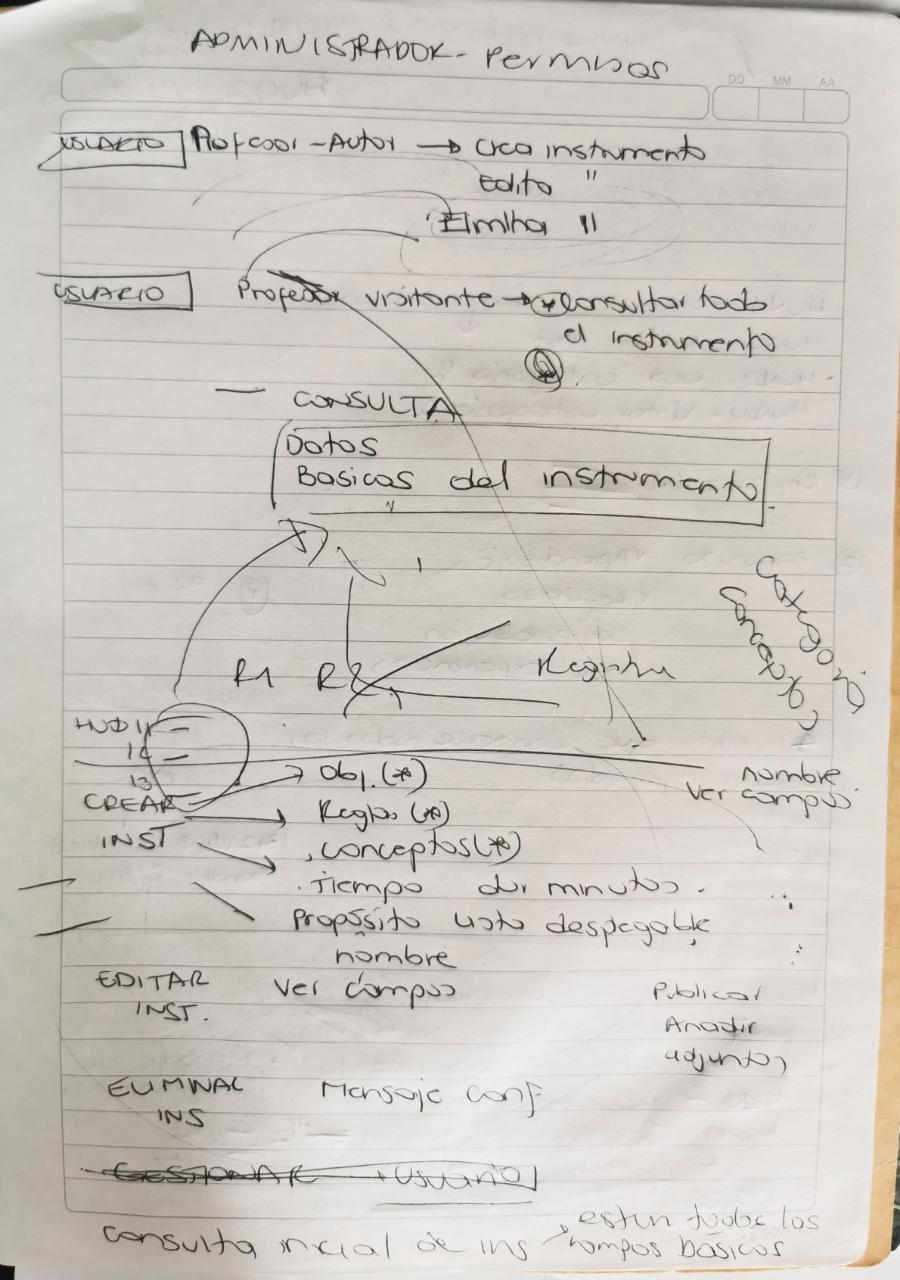 ADMINISTRADOR - Permisos
DD MM AA
USUARIO Profesor - Autor → Crea instrumento
Edita "
Elimina "
USUARIO Profesor visitante → consultar todo
el instrumento
— CONSULTA
Datos
Basicos del instrumento
R1 R2 Registra
Categoria
conceptos
HUD 11 -
12 -
13
CREAR
INST
Obj. (*)
Reglas (*)
conceptos (*)
Tiempo dur minutos.
Propósito lista despegable
nombre
ver campus
nombre
ver campus
EDITAR
INST.
Publicar
Anadir
adjuntos
ELIMINAR
INS
Mensaje conf
GESTIONAR + Usuario
consulta inicial de ins → esten todos los
campos básicos